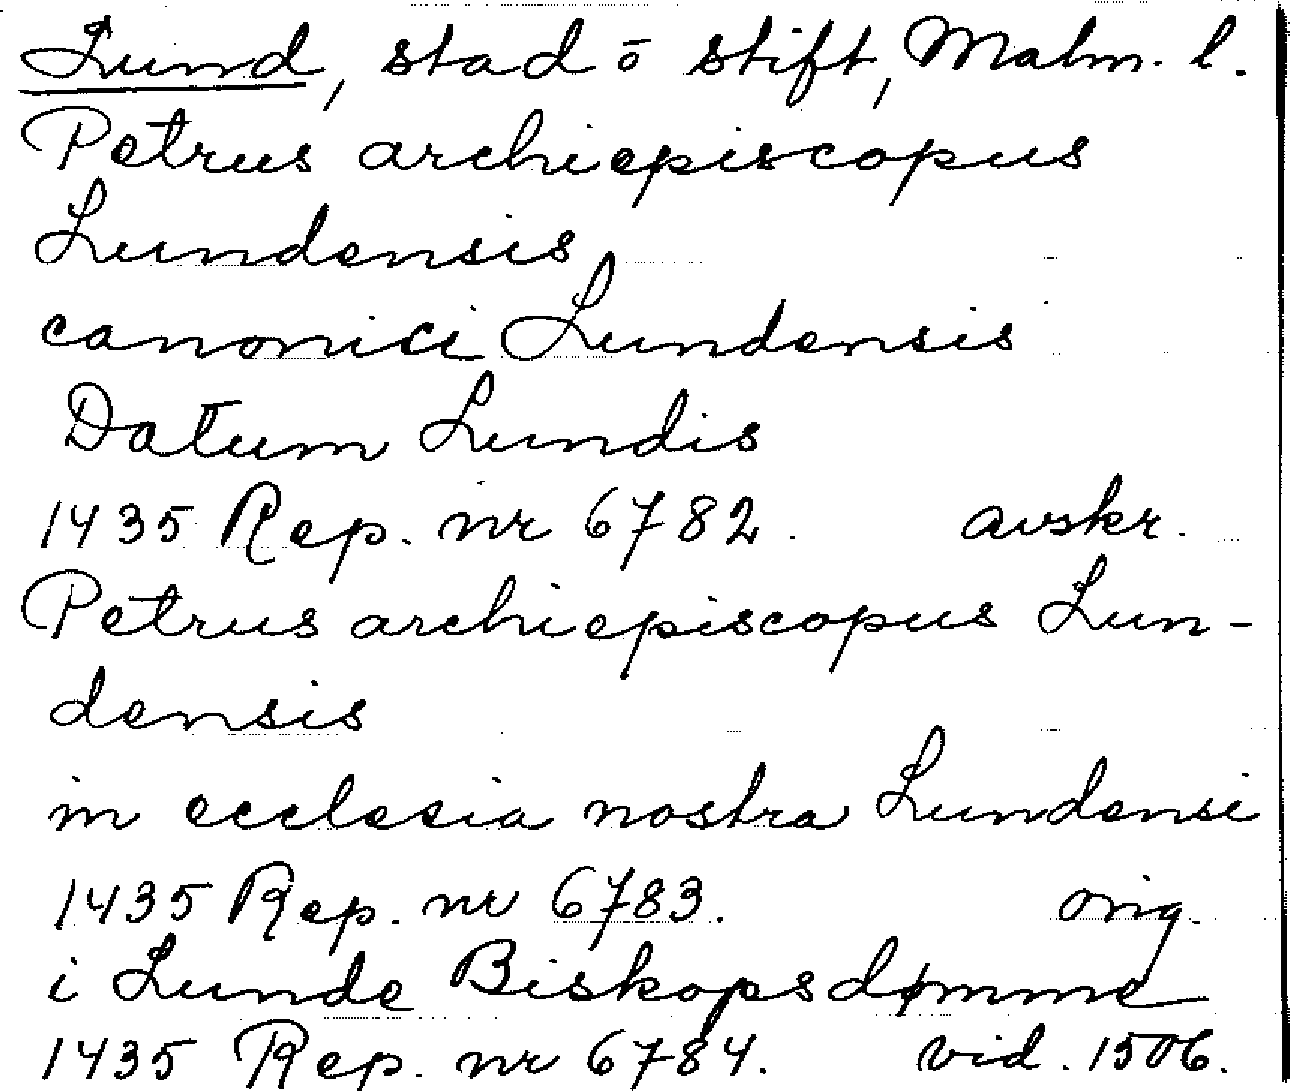 Lund, stad ō stift, Malm. l.
Petrus archiepiscopus
Lundensis
canonici Lundensis
Datum Lundis
1435 Rep. nr 6782. avskr.
Petrus archiepiscopus Lun-
densis
in ecclesia nostra Lundensi
1435 Rep. nr 6783. orig.
i Lunde Biskopsdømme
1435 Rep. nr 6784. vid. 1506.